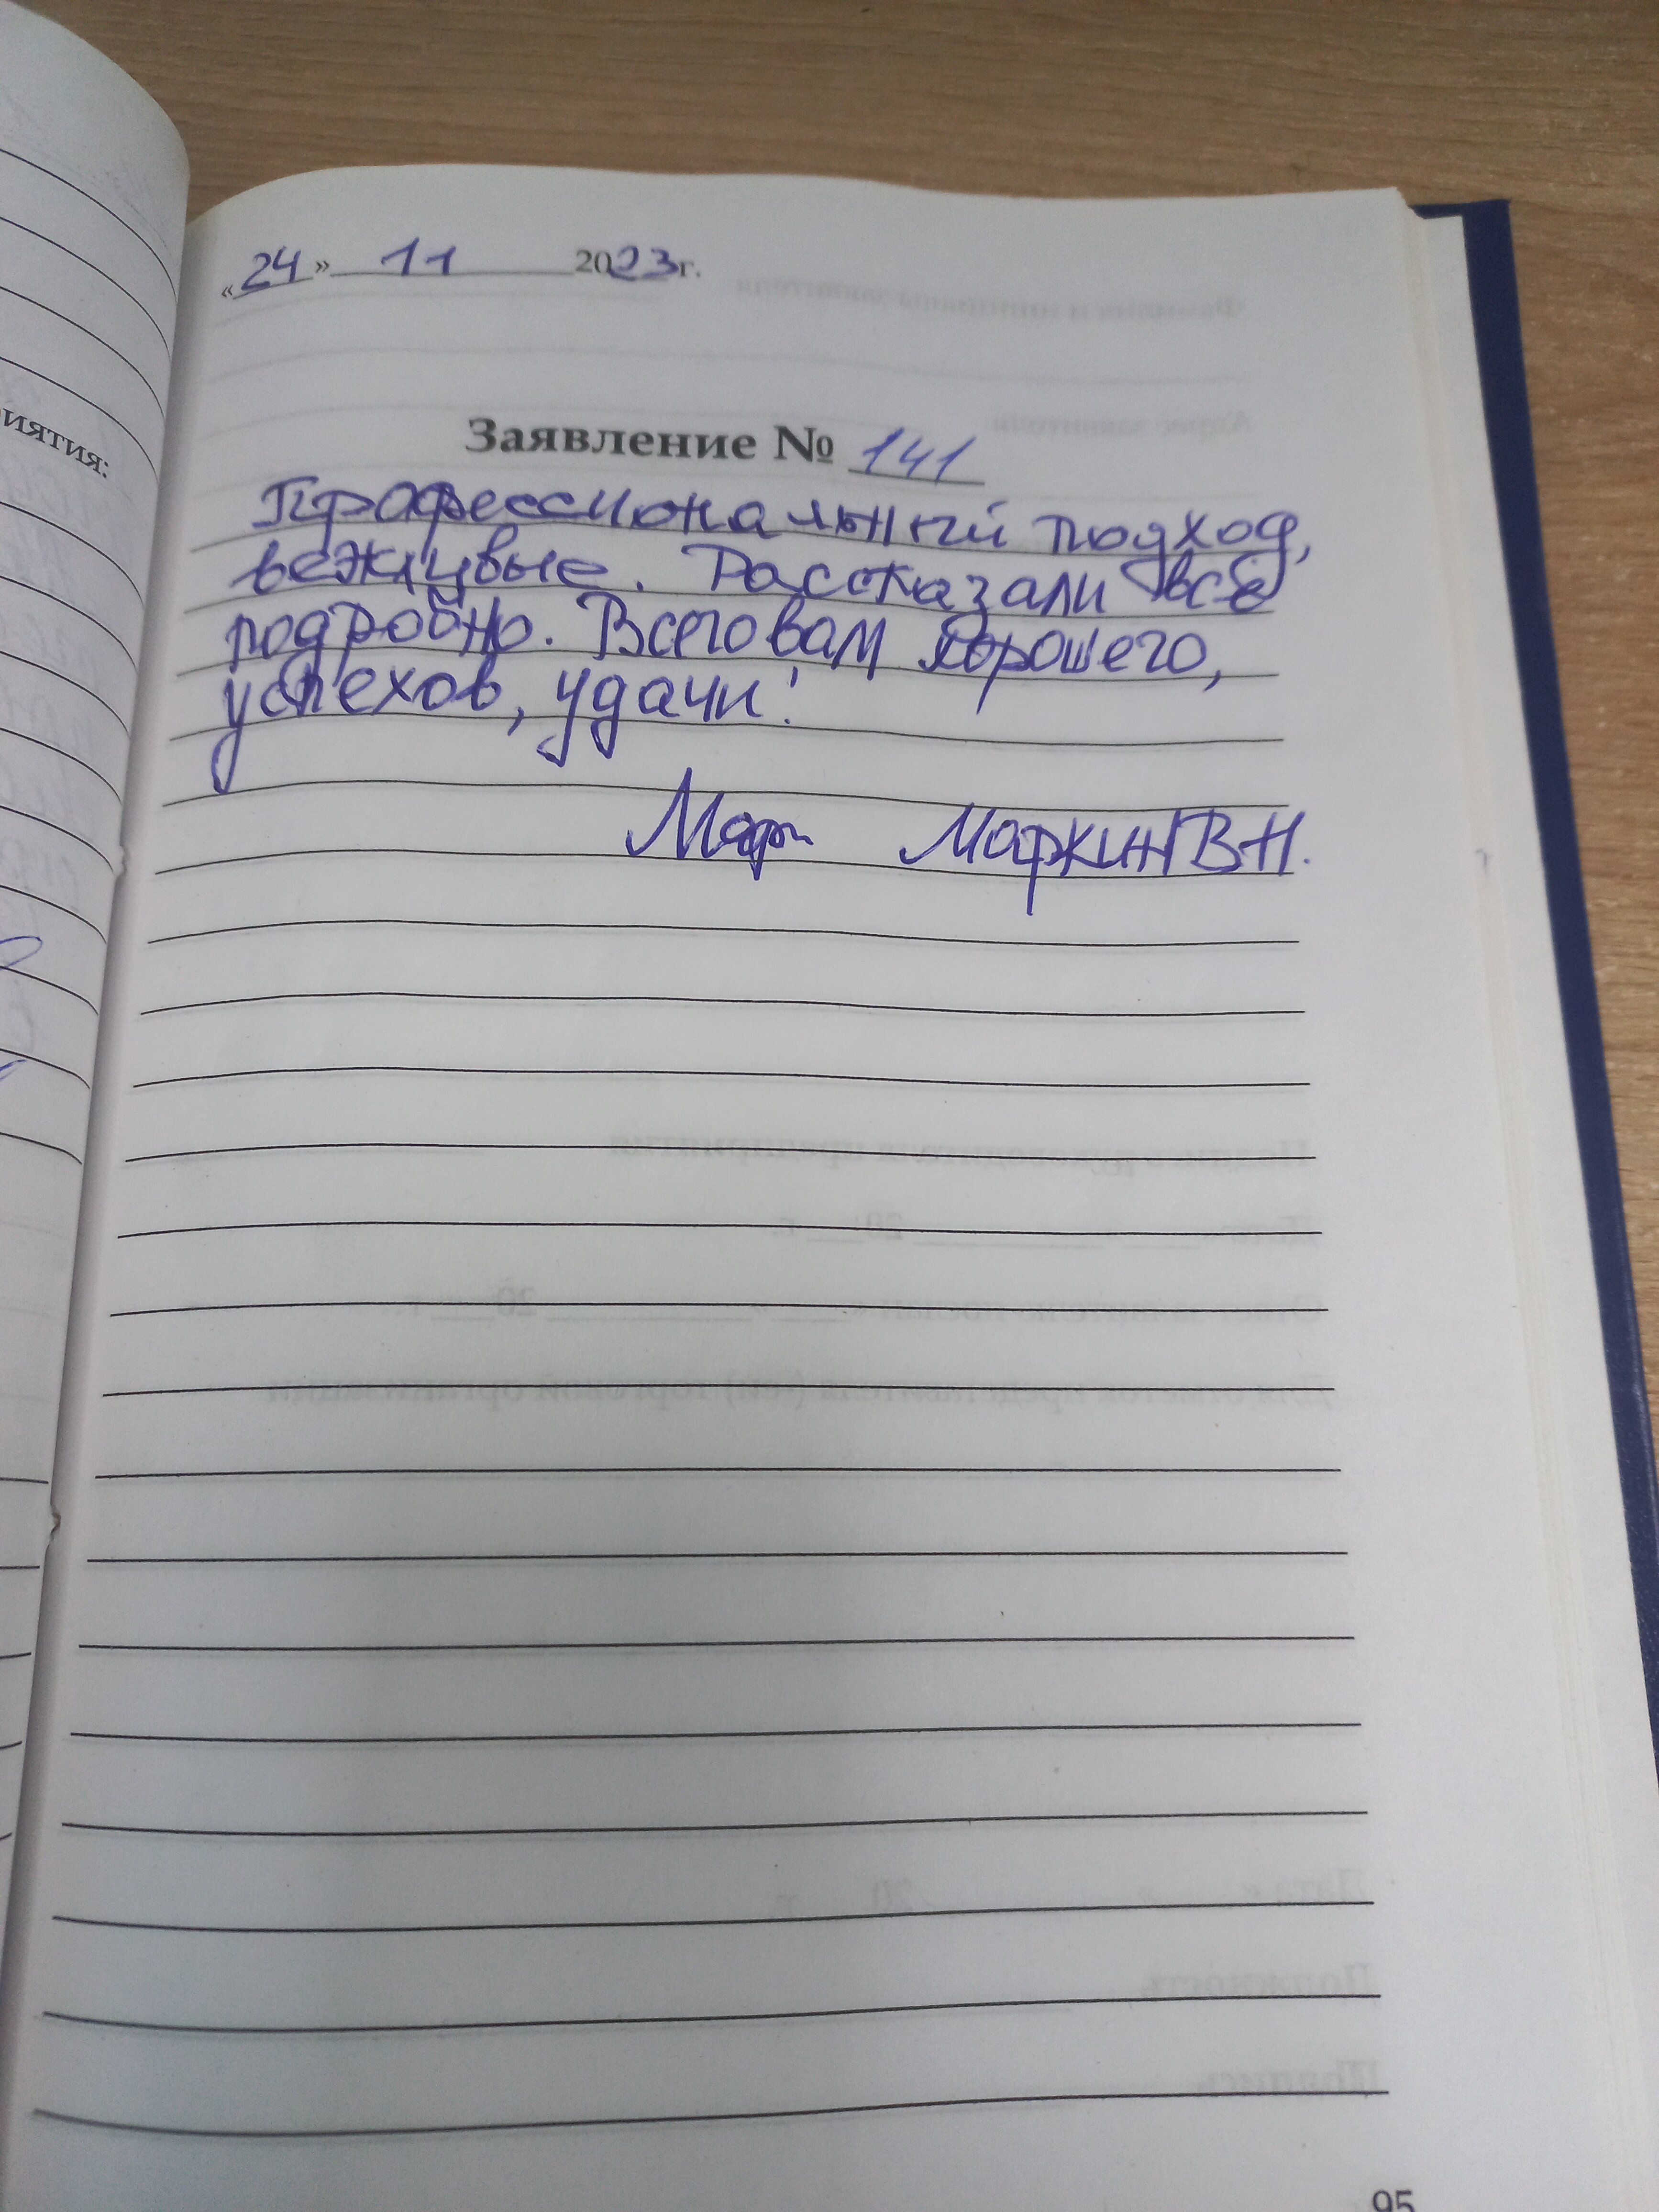 «24» 11 2023г.
Заявление № 141
Профессиональный подход,
вежливые. Рассказали всё
подробно. Всего вам хорошего,
успехов, удачи!
Марк Маркин В.Н.
иятия:
95